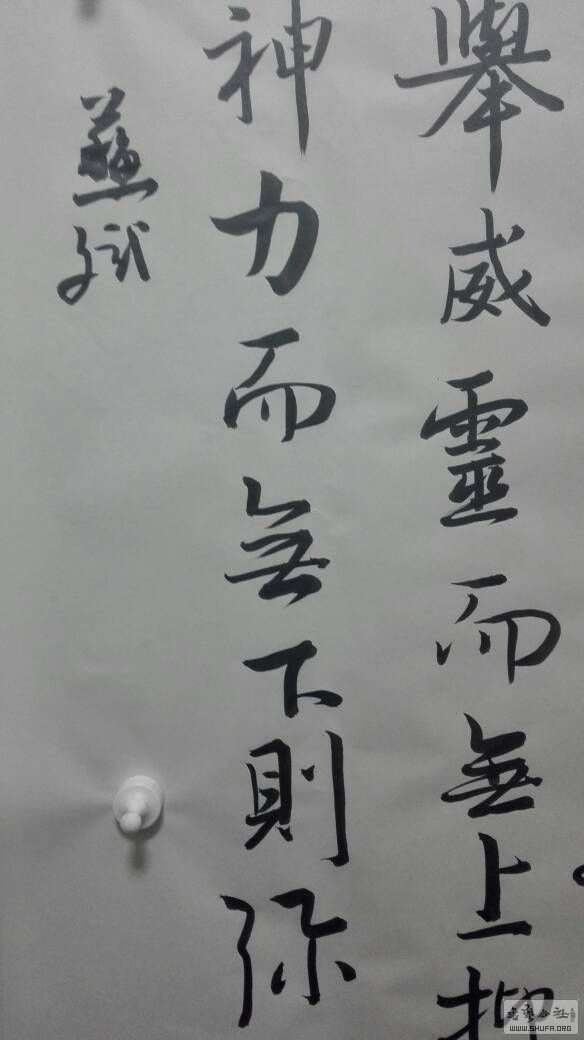 舉威靈而無上抑
神力而無下則弥
書藝公社
WWW.SHUFA.ORG